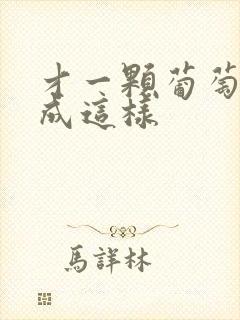 才一顆葡萄
成這樣
馬詳林